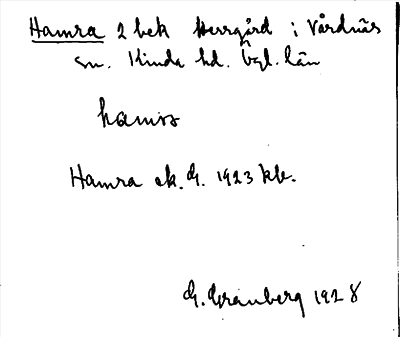 Hamra 2 bek Herrgård i Vårdnäs
sn. Kinda hd. Ögl. län
Hamra ek. G. 1923 kb.
G. Granberg 1928